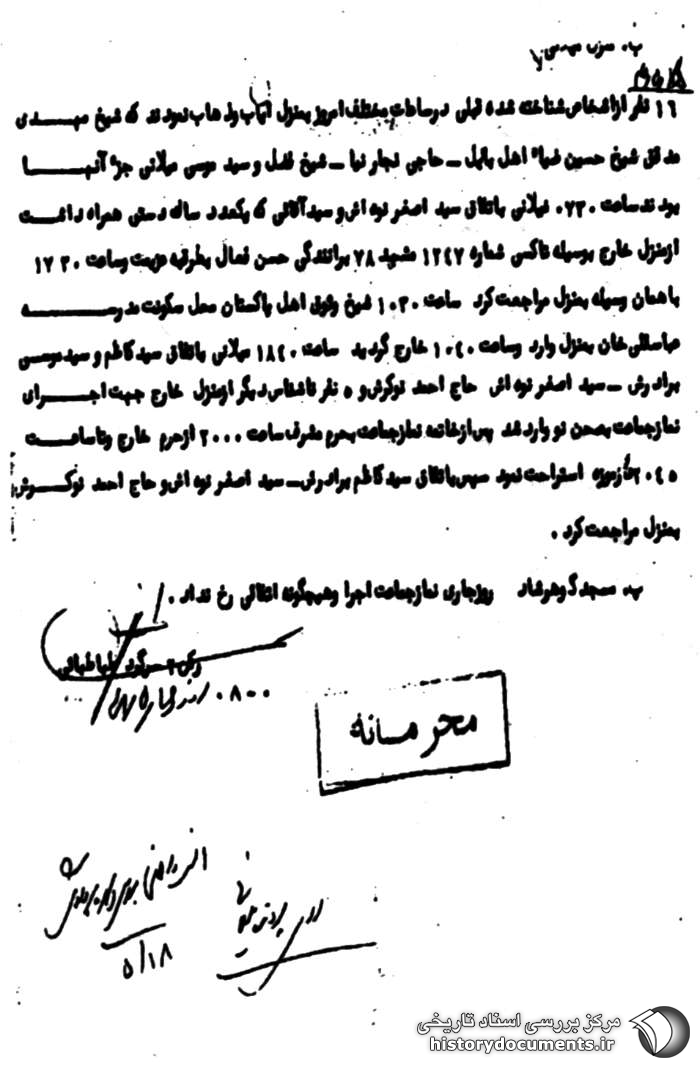 ۱۶ نفر از اشخاص شناخته شده قبلی در ساعات مختلف امروز بمنزل ایاب و ذهاب نمودند که شیخ مهدی
مدقق شیخ حسین ضیاء اهل بابل ــ حاجی نجار نیا ــ شیخ فضل و سید موسی میلانی جزء آنها
بودند ساعت ۰۷۳۰ میلانی باتفاق سید اصغر نوه اش و سید آقائی که یکعدد ساک دستی همراه داشت
ازمنزل خارج بوسیله تاکسی شماره ۱۲۴۷ مشهد ۷۸ برانندگی حسن فعال بطرقبه عزیمت وساعت ۱۷۳۰
با همان وسیله بمنزل مراجعت کرد ساعت ۱۰۳۰ شیخ وثوق اهل پاکستان محل سکونت مدرسه
عباسقلی خان بمنزل وارد وساعت ۱۰۴۰ خارج گردید ساعت ۱۸۴۰ میلانی باتفاق سید کاظم و سید موسی
برادرش ــ سید اصغر نوه اش حاج احمد نوکرش و ۵ نفر ناشناس دیگر ازمنزل خارج جهت اجرای
نماز جماعت بصحن نو وارد شد پس از خاتمه نماز جماعت بحرم مشرف ساعت ۲۰۰۰ ازحرم خارج و تا ساعت
۲۰۴۵ استراحت نمود سپس باتفاق سید کاظم برادرش ــ سید اصغر نوه اش و حاج احمد نوکرش
بمنزل مراجعت کرد .
ب. مسجد گوهرشاد روز جاری نماز جماعت اجرا و هیچگونه اتفاقی رخ نداد .
سرگرد طباطبائی
۰۸۰۰
محرمانه
۵/۱۸
مرکز بررسی اسناد تاریخی
historydocuments.ir